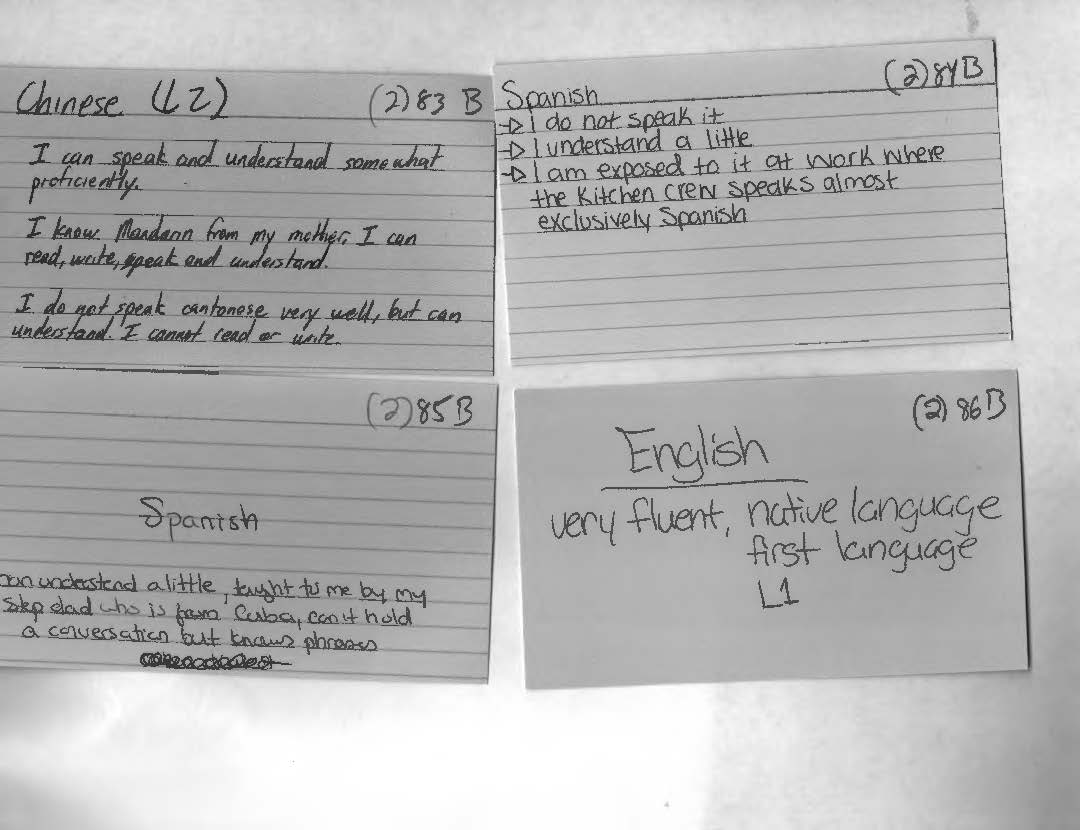 Chinese (L2) (2)83 B
I can speak and understand somewhat
proficiently.
I know Mandarin from my mother, I can
read, write, speak and understand.
I do not speak cantonese very well, but can
understand. I cannot read or write.
(2)84B
Spanish
→ I do not speak it
→ I understand a little
→ I am exposed to it at work where
the kitchen crew speaks almost
exclusively Spanish
(2)85B
Spanish
can understand a little, taught to me by my
step dad who is from Cuba, can't hold
a conversation but knows phrases
(2) 86B
English
very fluent, native language
first language
L1